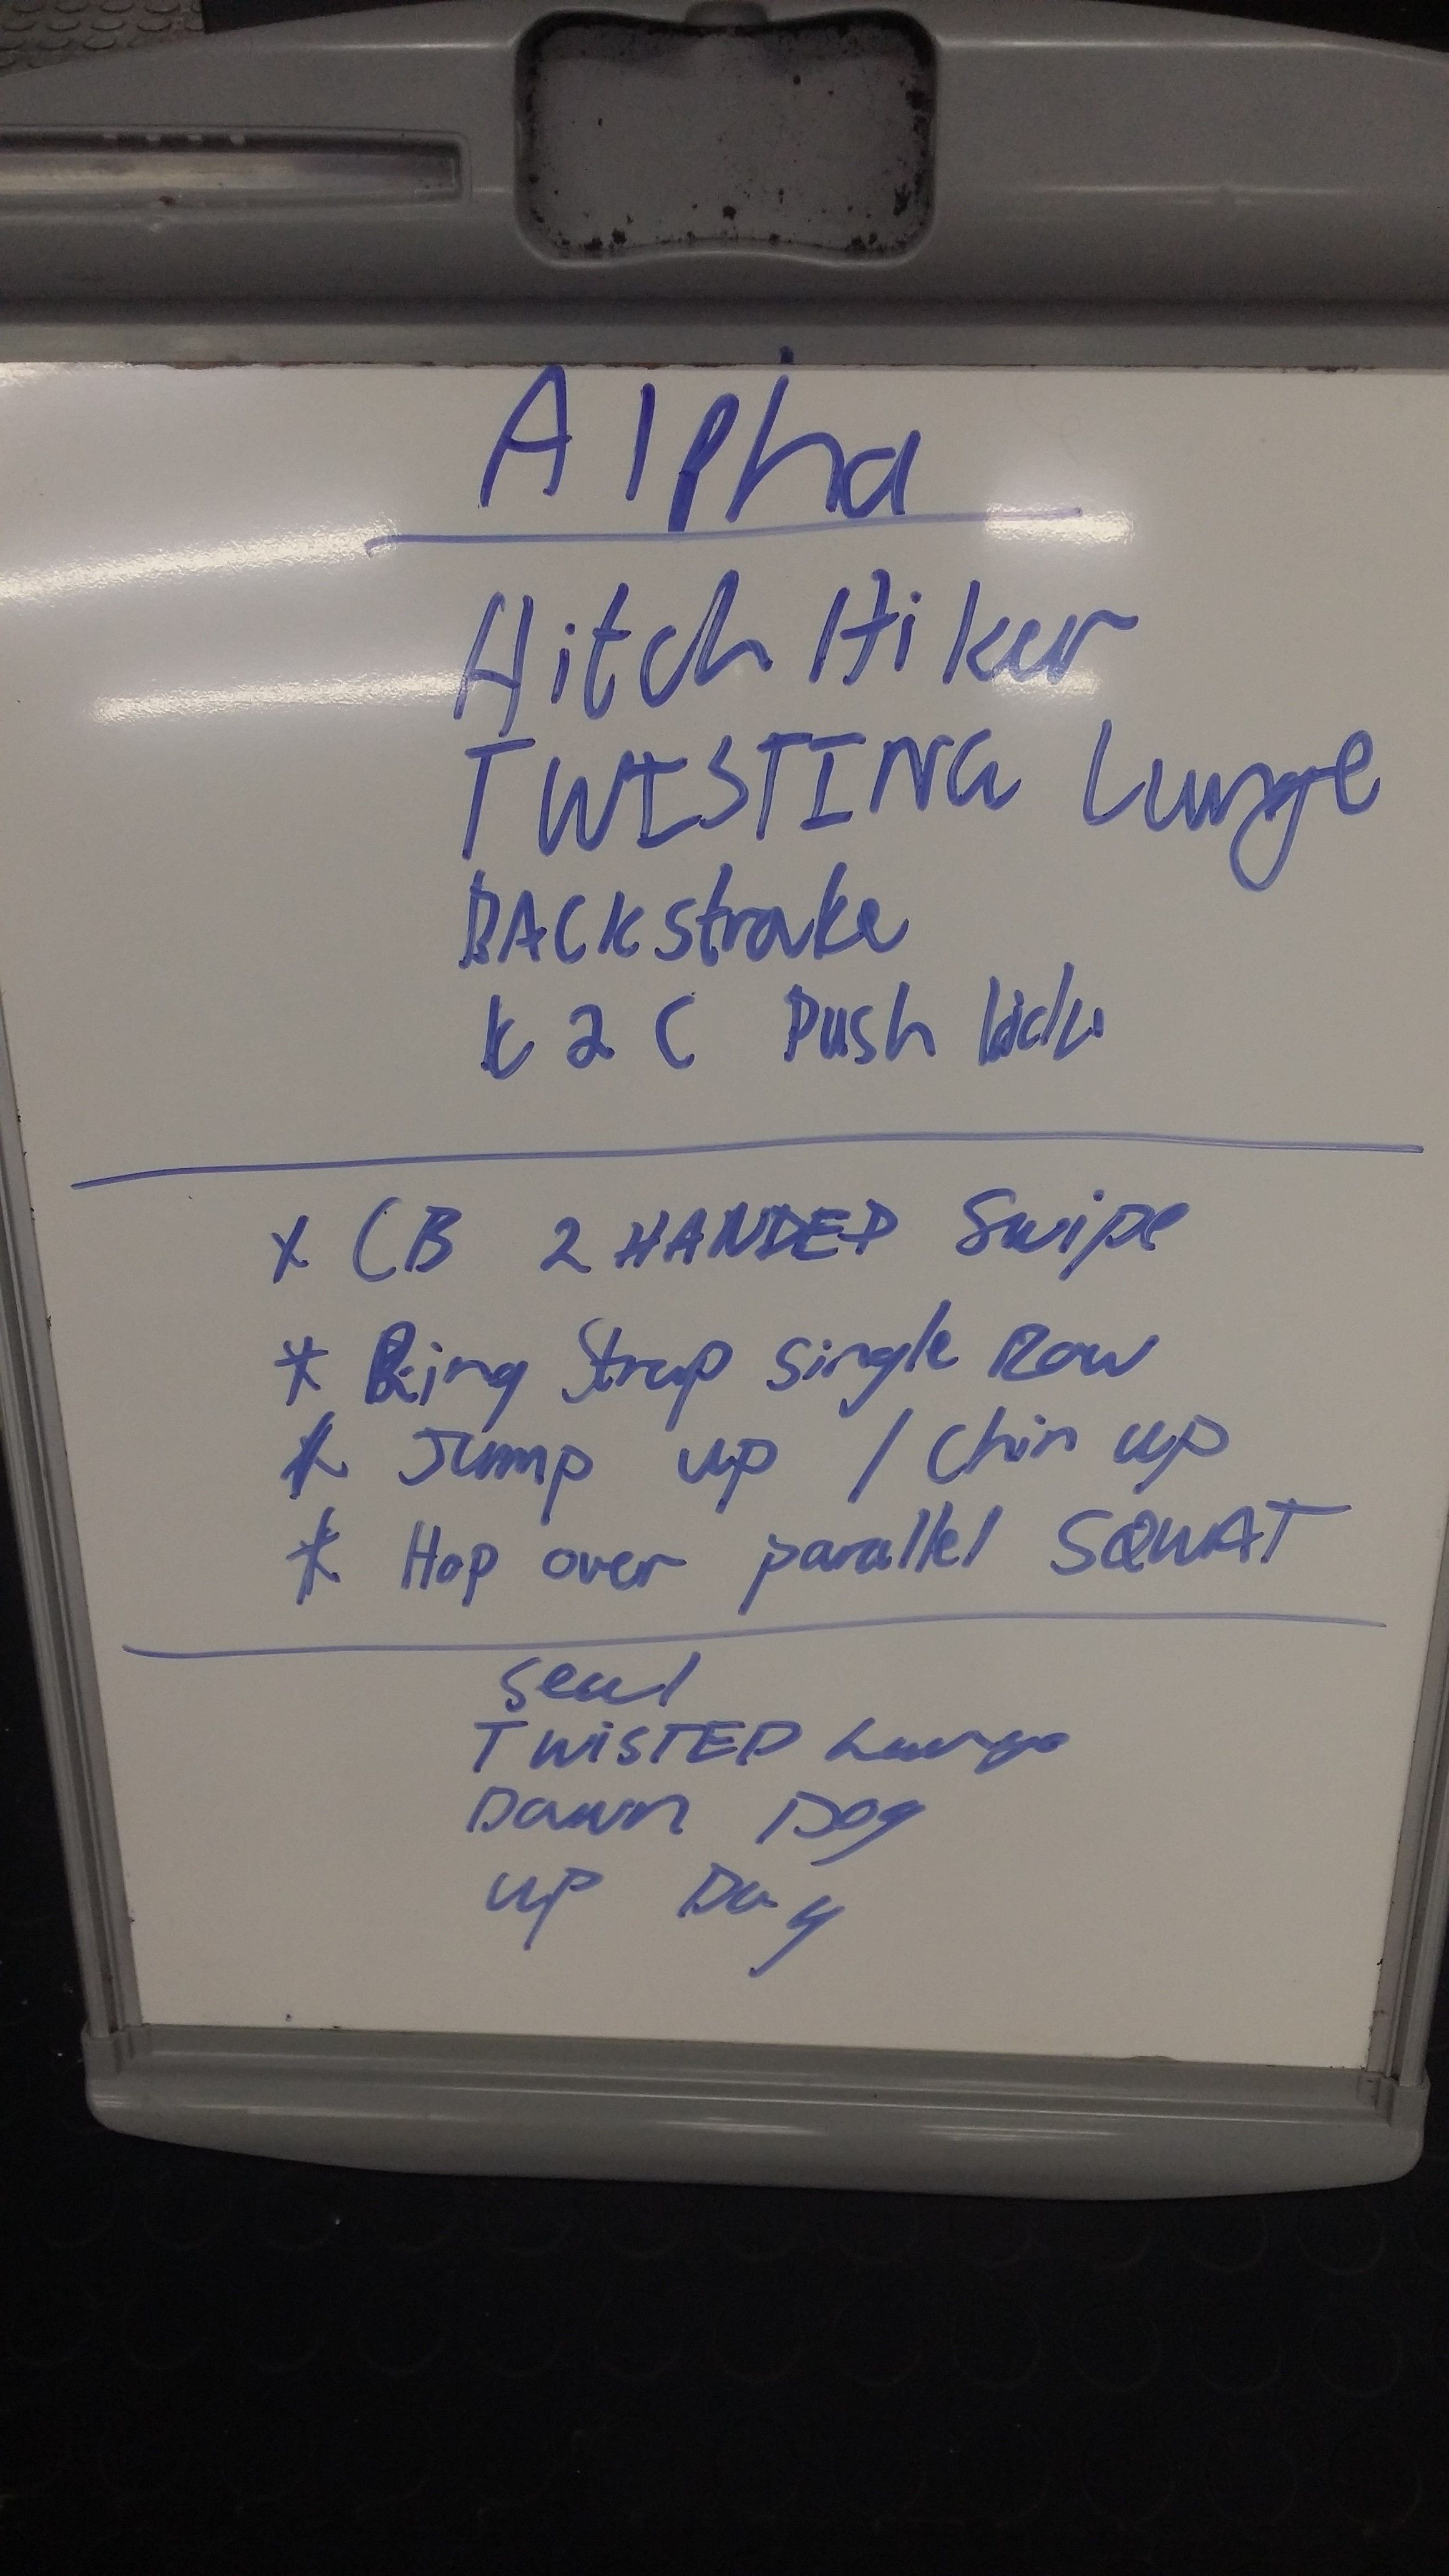 Alpha
Hitch Hiker
TWISTING Lunge
BACKstroke
K 2 C Push kick
x CB 2 HANDED Swipe
* Ring Strap Single Row
* Jump up / Chin up
* Hop over parallel SQUAT
Seal
TWiSTED Lunge
Down Dog
up Dog